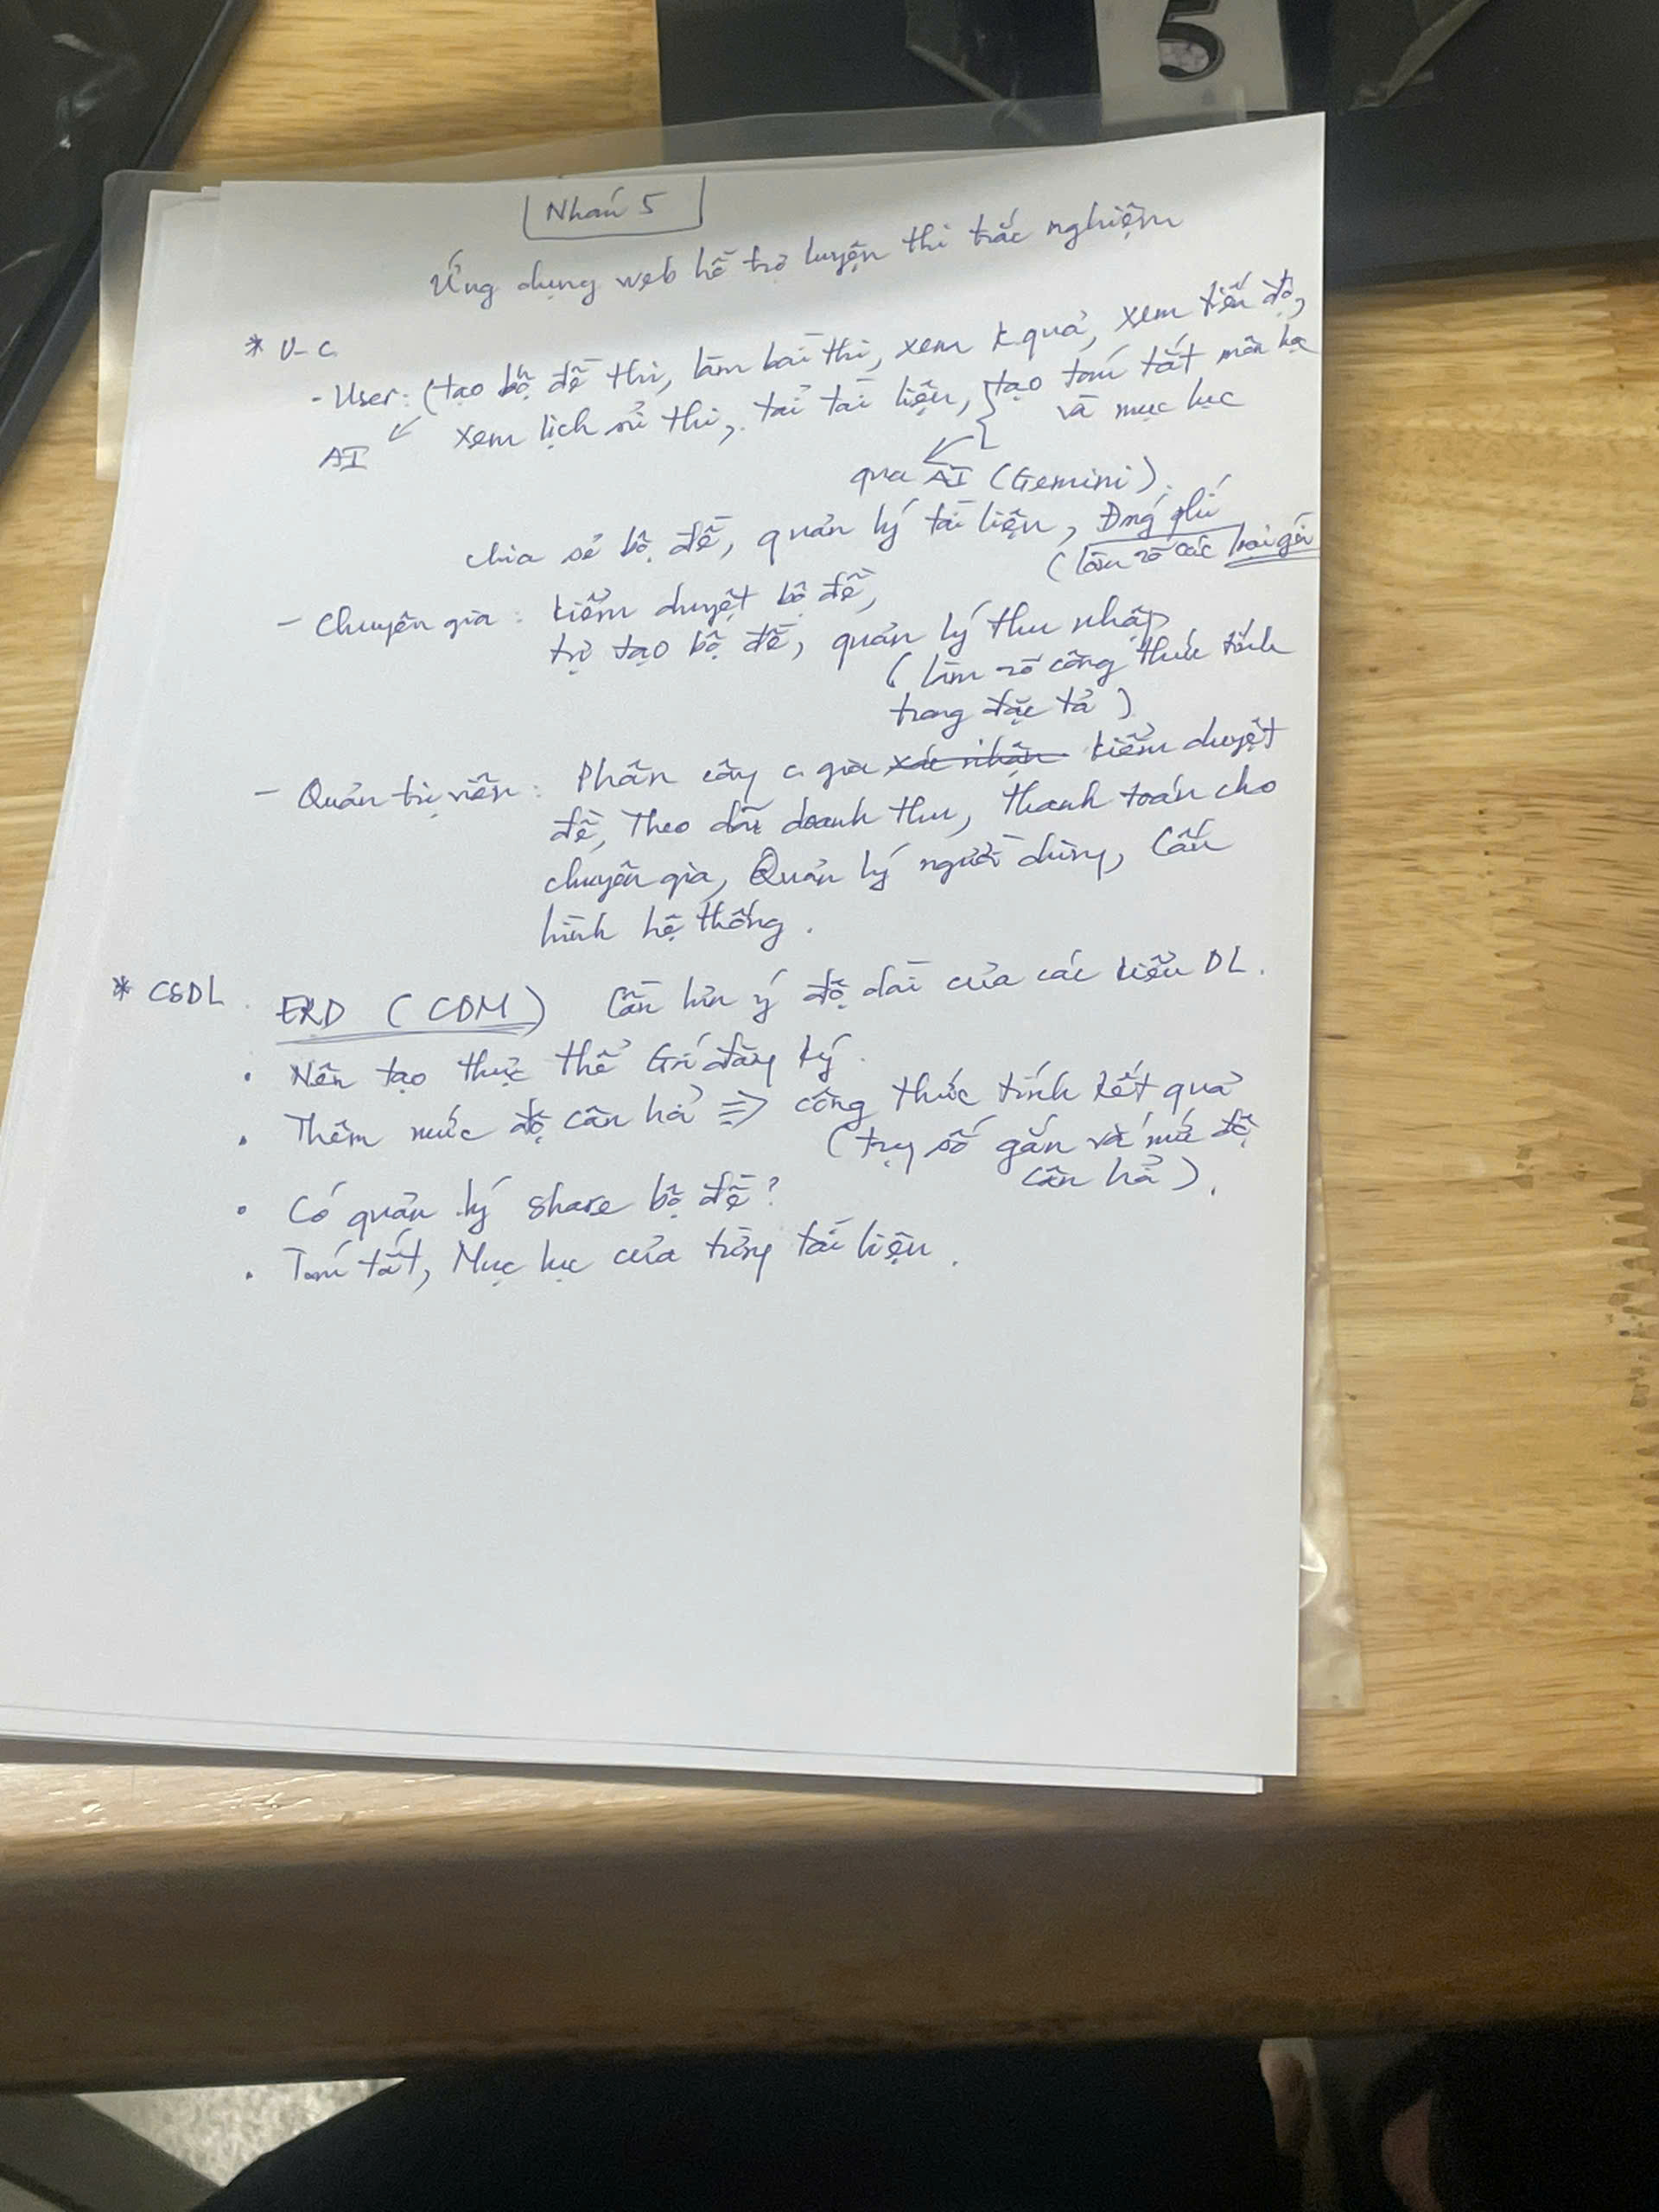 5
Nhóm 5
Ứng dụng web hỗ trợ luyện thi trắc nghiệm
* U-C
- User: (tạo bộ đề thi, làm bài thi, xem k.quả, xem tiến độ,
AI xem lịch sử thi, tải tài liệu, tạo tóm tắt môn học
và mục lục
qua AI (Gemini).
chia sẻ bộ đề, quản lý tài liệu, Đóng phí
(làm rõ các loại gói
- Chuyên gia: kiểm duyệt bộ đề,
tự tạo bộ đề, quản lý thu nhập
(làm rõ công thức tính
trong đặc tả)
- Quản trị viên: Phân công c. gia xác nhận kiểm duyệt
đề, Theo dõi doanh thu, thanh toán cho
chuyên gia, Quản lý người dùng, Cấu
hình hệ thống.
* CSDL. ERD (CDM) Cần lưu ý độ dài của các kiểu DL.
• Nên tạo thực thể Gói đăng ký.
• Thêm mức độ câu hỏi => công thức tính kết quả
(trọng số gắn với mức độ
câu hỏi).
• Có quản lý share bộ đề?
• Tóm tắt, Mục lục của từng tài liệu.